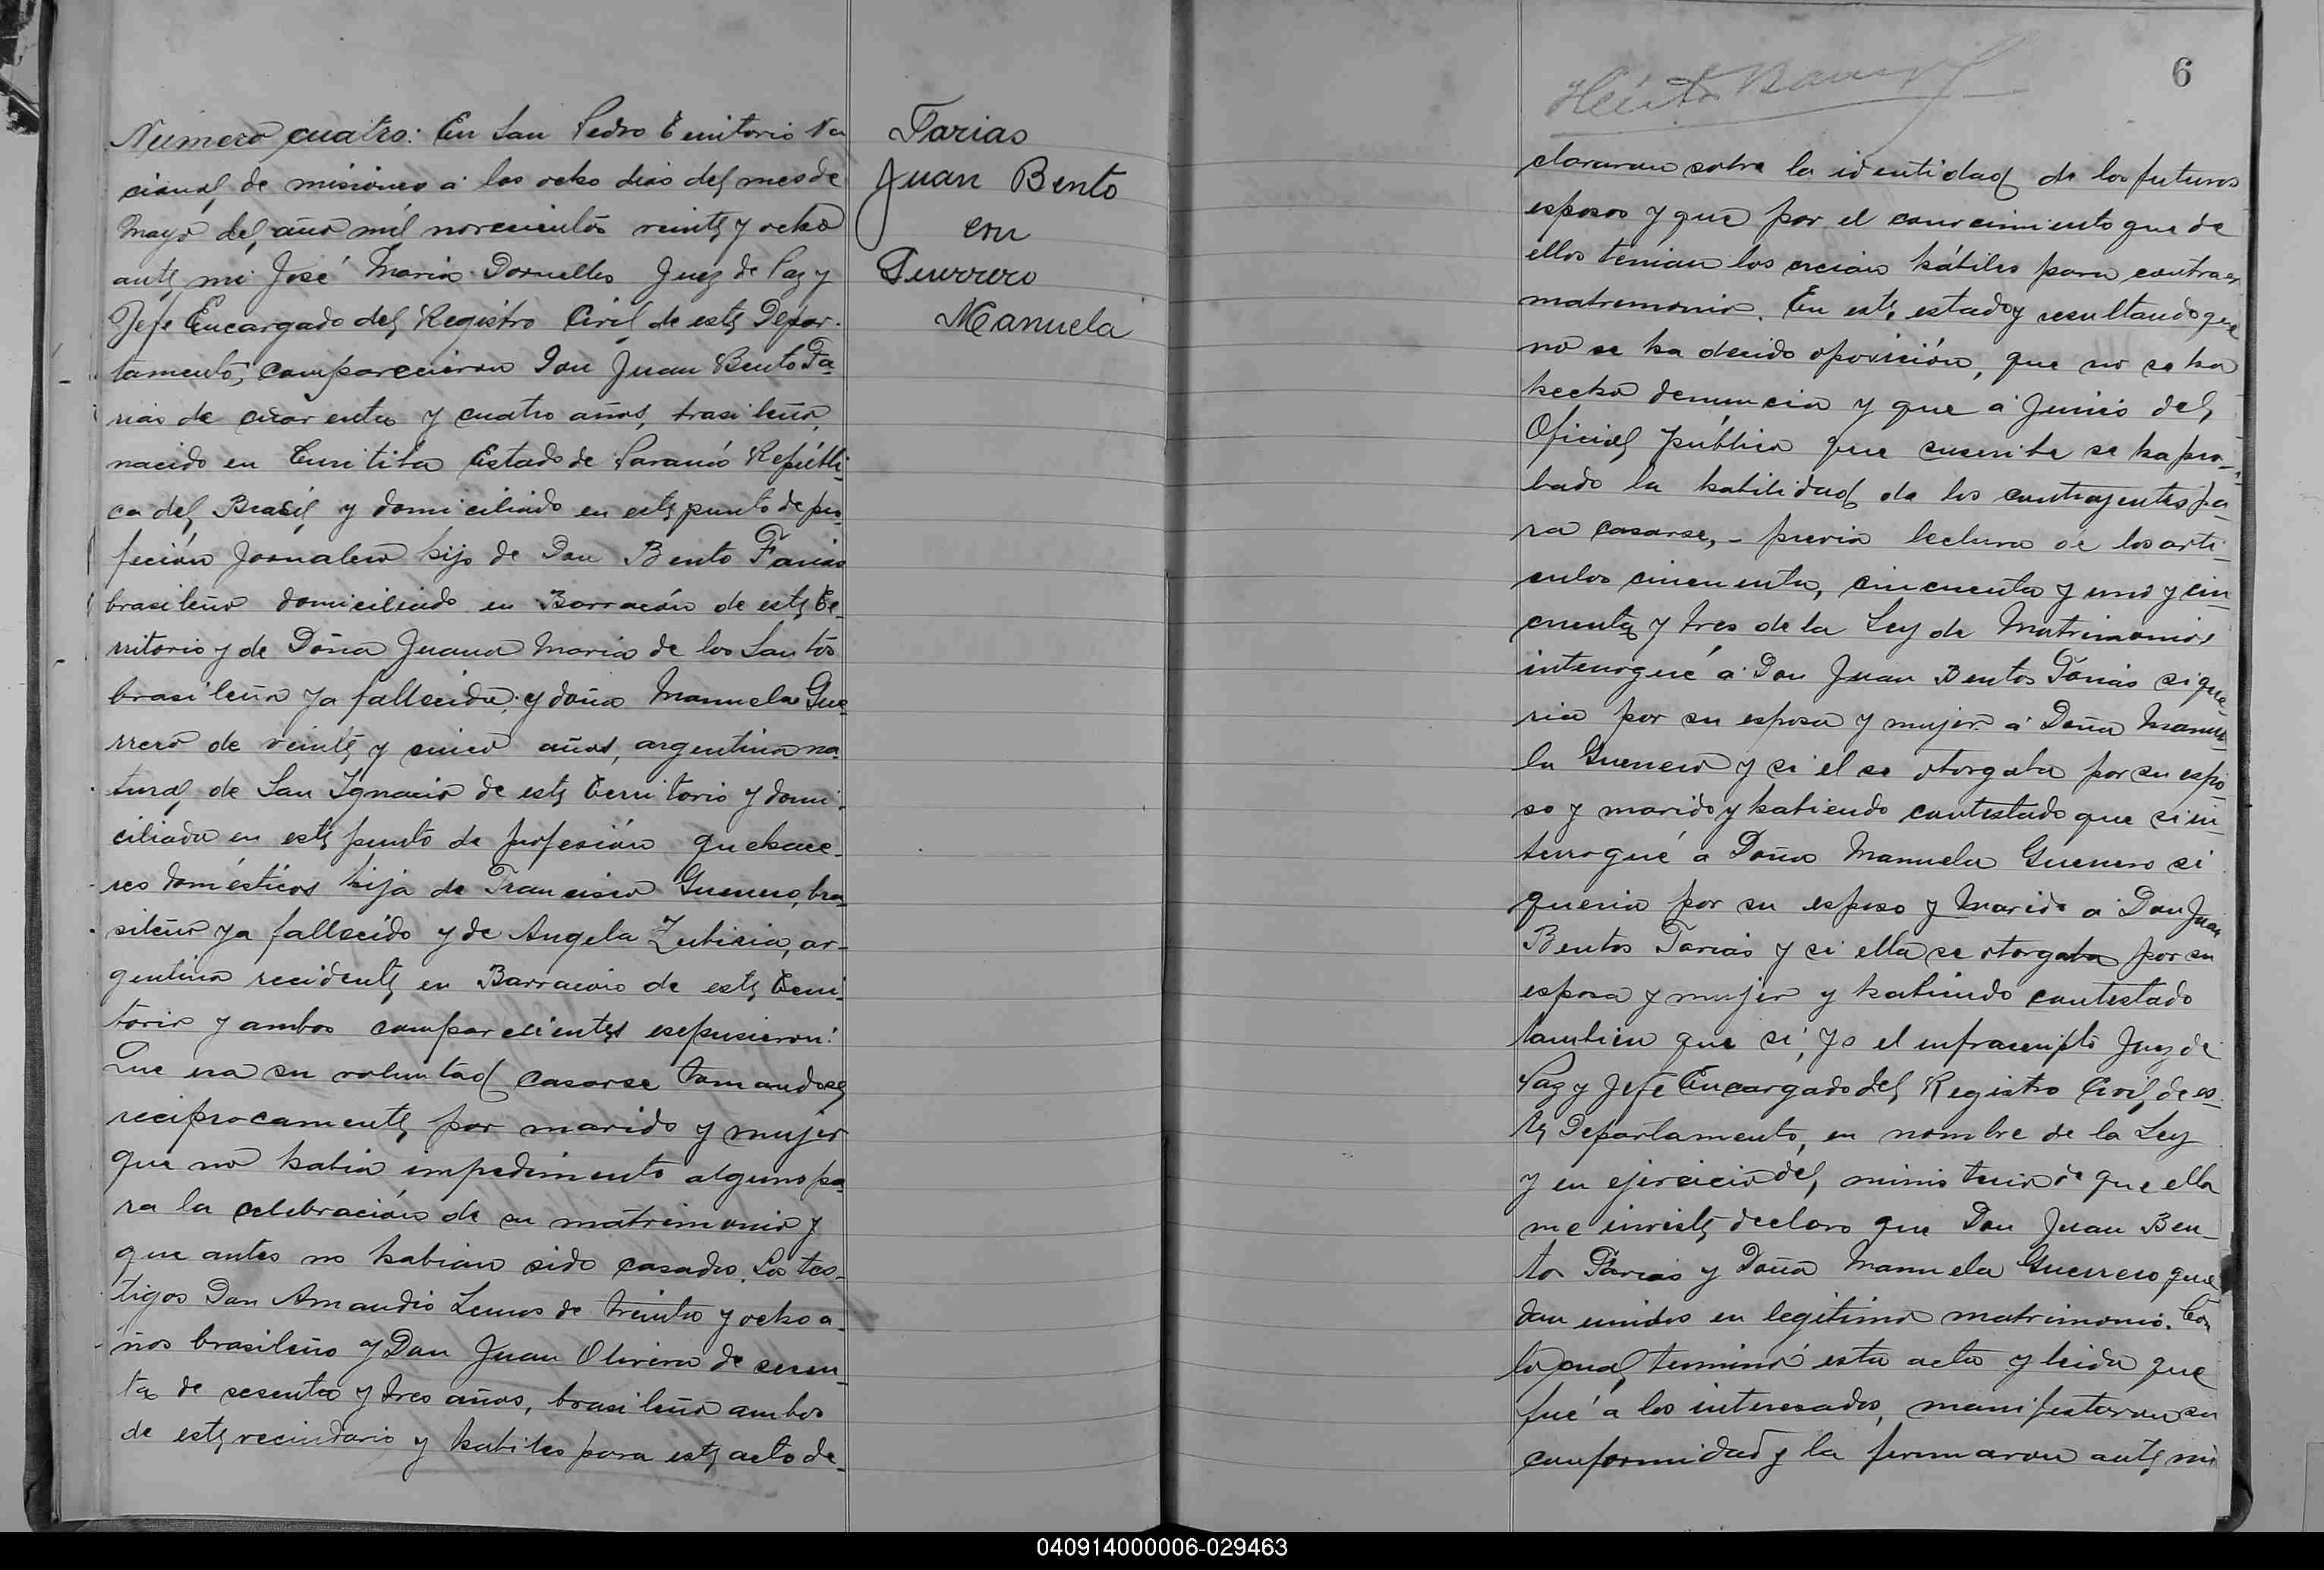 Número cuatro: En San Pedro Territorio Na
cional de misiones a los ocho dias del mes de
Mayo del año mil novecientos veinte y ocho
ante mi José Maria Dornelles Juez de Paz y
Jefe Encargado del Registro Civil de este Depar-
tamento, comparecieron Don Juan Bento Fa
rias de cuarenta y cuatro años, brasileño,
nacido en Curitiba Estado de Paraná Repúbli-
ca del Brasil y domiciliado en este punto de pro-
feción Jornalero hijo de Don Bento Farias
brasileño domiciliado en Barracón de este Te-
rritorio y de Doña Juana Maria de los Santos
brasileña ya fallecida, y doña Manuela Gue-
rrero de veinte y cinco años, argentina na-
tural de San Ignacio de este Territorio y domi-
ciliada en este punto de profesión quehace-
res domésticos hija de Francisco Guerrero, bra-
sileño ya fallecido y de Angela Zubiria, ar-
gentina recidente en Barracón de este Terri-
torio y ambos comparecientes esepusieron:
Que era su voluntad casarse tomandose
reciprocamente por marido y mujer
que no habia impedimento alguno pa-
ra la celebración de su matrimonio y
que antes no habian sido casados. Los tes-
tigos Don Amandio Lemos de treinta y ocho a-
ños brasileño y Don Juan Olivera de sesen-
ta de sesenta y tres años, brasileño ambos
de este vecindario y habiles para este acto de-
Farias
Juan Bento
con
Guerrero
Manuela
6
clararon sobre la identidad de los futuros
esposos y que por el conocimiento que de
ellos tenian los creian hábiles para contraer
matremonio. En este estado y resultando que
no se ha decido oposición, que no se ha
hecho denuncia y que a Juicio del
Oficial público que suscribe se ha pro-
bado la habilidad de los contrayentes pa-
ra casarse, - previa lectura de los arti-
culos cincuenta, cincuenta y uno y cin-
cuenta y tres de la Ley de Matrimonios
interrogué a Don Juan Bentos Farias si que-
ria por su esposa y mujer a Doña Manue-
la Guerrero y si el se otorgaba por su espo-
so y marido y habiendo contestado que si in-
terrogué a Doña Manuela Guerrero si
queria por su esposo y Marido a Don Juan
Bentos Farias y si ella se otorgaba por su
esposa y mujer y habiendo contestado
tambien que si, Yo el infrascripto Juez de
Paz y Jefe Encargado del Registro Civil de es-
te Departamento, en nombre de la Ley
y en ejercicio del ministerio de que ella
me inviste declaro que Don Juan Ben-
tos Farias y Doña Manuela Guerrero que
dan unidos en legitimo matrimonio. Con
lo cual terminó esta acta y leida que
fué a los interesados, manifestaron su
conformidad y la firmaron ante mi
040914000006-029463